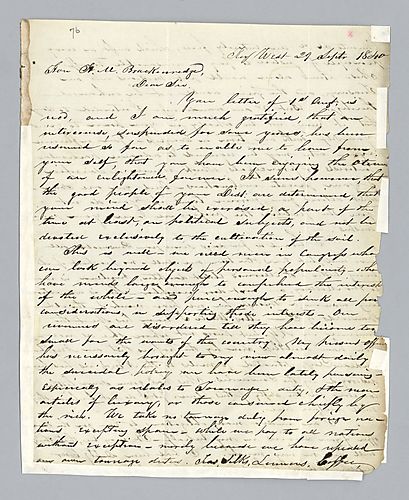 76
Key West 29 Septr 1840
Hon H. M. Brackenridge,
Dear Sir
Your letter of 1st Augt is
recd, and I am much gratified, that an
intercourse, suspended for some years, has been
resumed so far as to enable me to hear from
your self, that you have been enjoying the Otium
of an enlightened farmer. It seems however that
the good people of your Dist. are determined that
your mind should be exercised, a part of the
time at least, on political subjects, and not be
devoted exclusively to the cultivation of the soil.
This is well - we need men in Congress who
can look beyond objects of personal popularity - who
have minds large enough to comprehend the interests
of the whole - and pure enough to sink all
considerations, in supporting those interests - Our
revenues are disordered till they have become too
small for the wants of the country. My present
has necessarily brought to my view almost daily
the suicidal policy we have been lately pursuing
Especially as relates to Tonnage duty, & the
articles of luxury, or those consumed chiefly by
the rich. We take no tonnage duty from foreign
tions excepting Spain - while we pay to all nations
without exception - merely because we have repealed
our own tonnage duties. Teas, Silks, Linnens, Coffee,